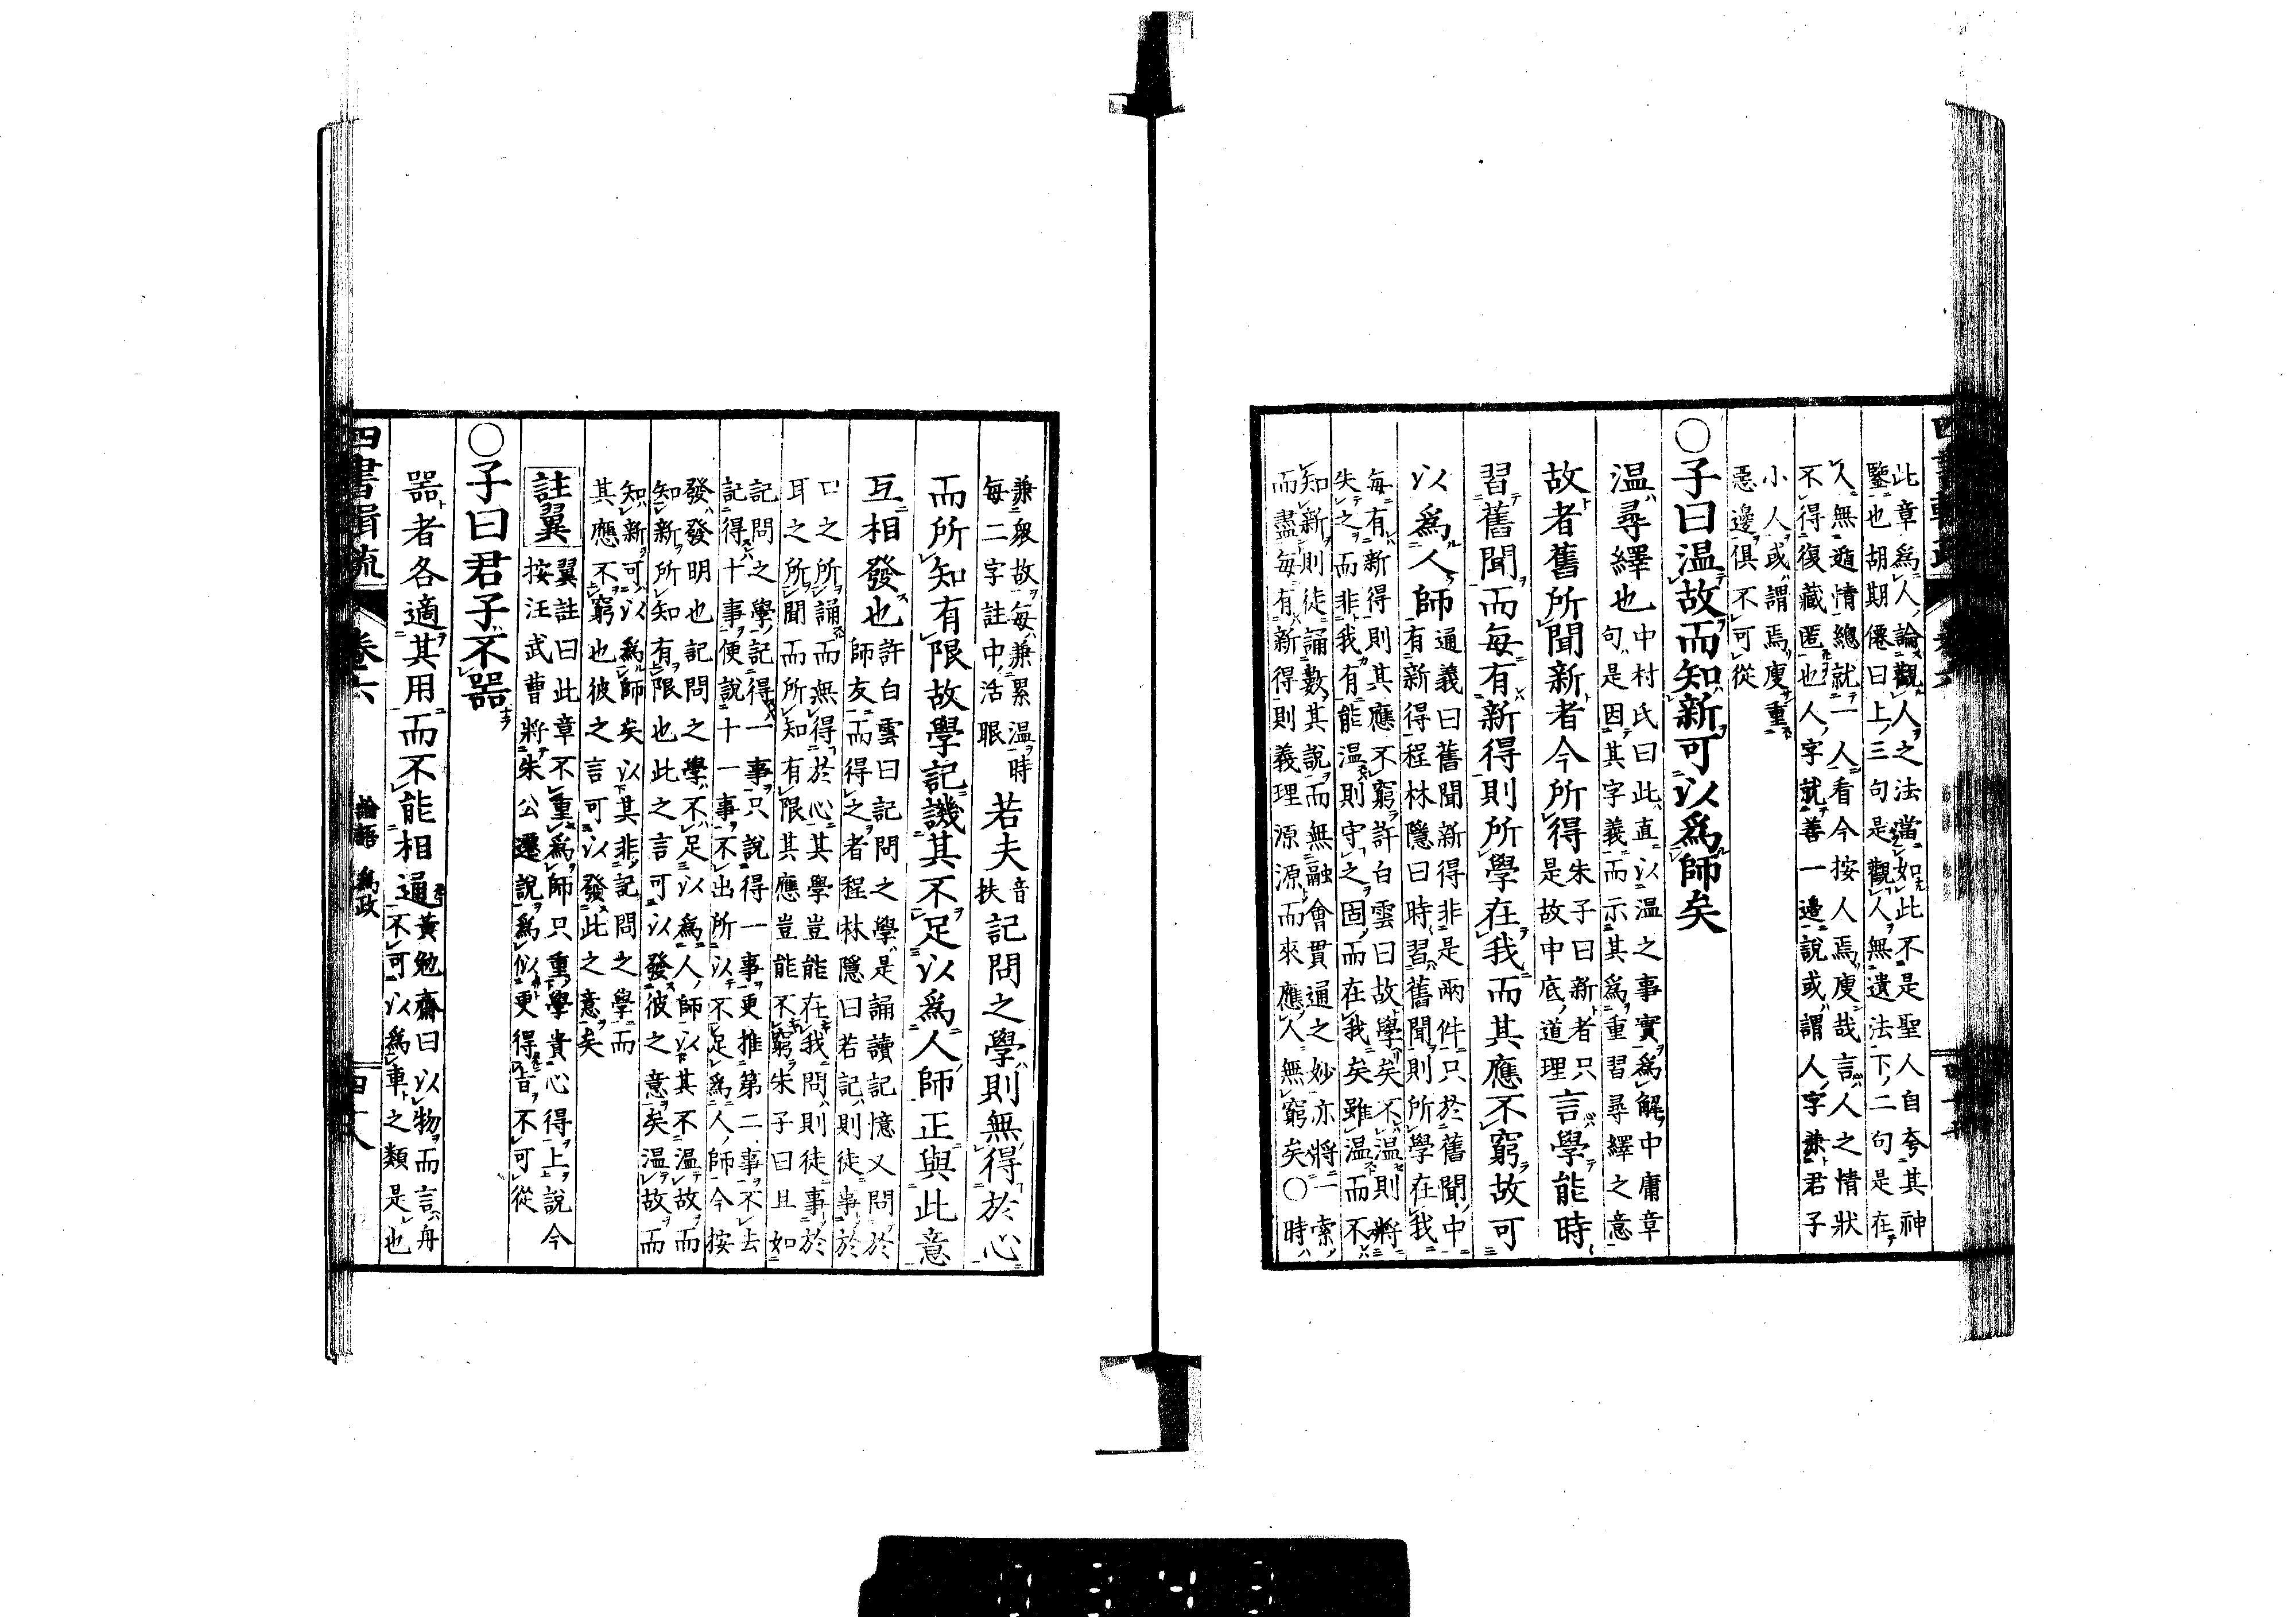 此章爲人論觀人之法當如此不是聖人自夸其神
鑒也胡期僊曰上三句是觀人無遺法下二句是在
人無遁情總就一人看今按人焉廋哉言人之情狀
不得復藏匿也人字就善一邊說或謂人字兼君子
小人或謂焉廋重
惡邊俱不可從
○子曰温故而知新可以爲師矣
温尋繹也
中村氏曰此直以温之事實爲解中庸章
句是因其字義而示其爲重習尋繹之意
故者舊所聞新者今所得
朱子曰新者只
是故中底道理
言學能時
習舊聞而每有新得則所學在我而其應不窮故可
以爲人師
通義曰舊聞新得非是兩件只於舊聞中
有新得程林隱曰時習舊聞則所學在我
每有新得則其應不窮許白雲曰故學矣不温則將
失之而非我有能温則守之固而在我矣雖温而不
知新則徒誦數其說而無融會貫通之妙亦將一索
而盡每有新得則義理源源而來應人無窮矣○時
兼衆故每兼累温時
每二字註中活眼
若夫
音
扶
記問之學則無得於心
而所知有限故學記譏其不足以爲人師正與此意
互相發也
許白雲曰記問之學是誦讀記憶又問於
師友而得之者程林隱曰若記則徒事於
口之所誦而無得於心其學豈能在我問則徒事於
耳之所聞而所知有限其應豈能不窮朱子曰且如
記問之學記得一事只說得一事更推第二事不去
記得十事便說十一事不出所以不足爲人師今按
發發明也記問之學不足以爲人師以其不温故而
知新所知有限也此之言可以發彼之意矣温故而
知新可以爲師矣以其非記問之學而
其應不窮也彼之言可以發此之意矣
註翼
翼註曰此章不重爲師只重學貴心得上說今
按汪武曹將朱公遷說爲似更得旨不可從
○子曰君子不器
器者各適其用而不能相通
黃勉齋曰以物而言舟
不可以爲車之類是也
四書輯疏
卷六
論語 爲政
四十八